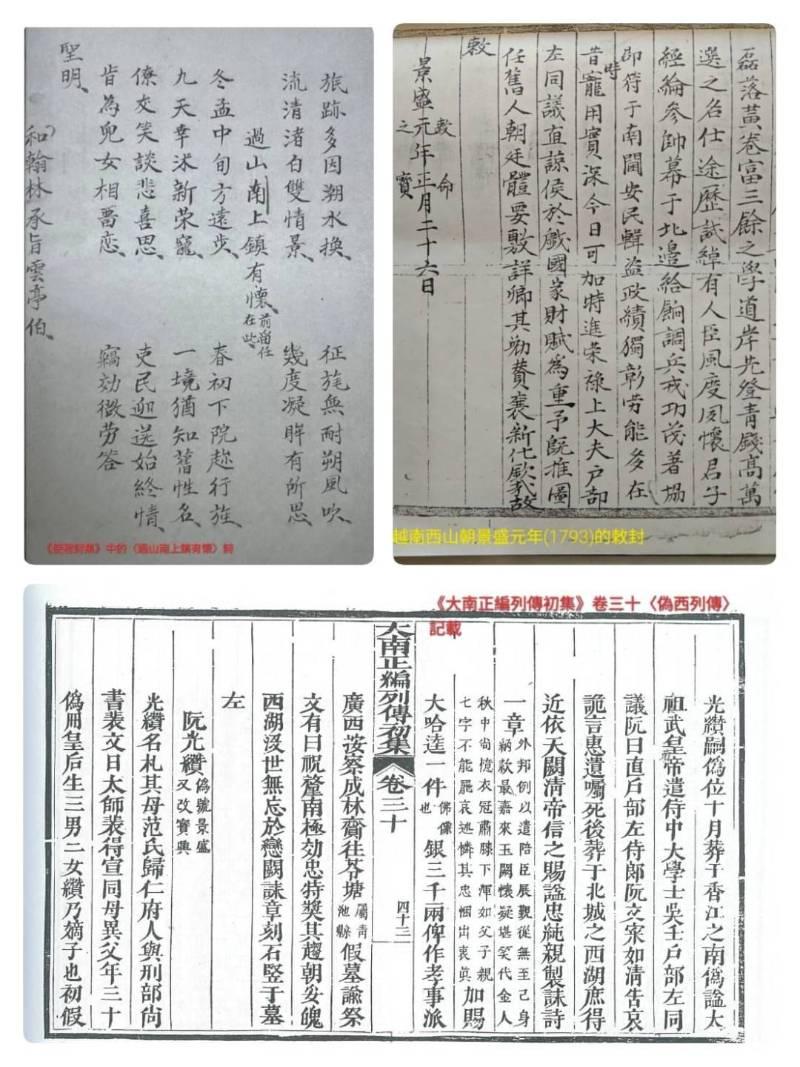 旅跡多因朔水換、 征旄無耐朔風吹、
流清渚白雙情景、 幾度凝眸有所思
過山南上鎮有懷 前留任在此
冬孟中旬方遠步、 春初下院趂行旌
九天幸沐新荣寵、 一境猶知舊性名、
僚交笑談悲喜思、 吏民迎送始終情、
肯為兒女相畱恋、 竊効微劳答
聖明、
和翰林承旨雲亭伯
詩集》中的〈過山南上鎮有懷〉詩
磊落黃卷富三餘之學道岸先登青錢高萬
選之名仕途歷試綽有人臣風度夙懷君子
經綸參帥幕于北邊給餉調兵戎功茂著
即符于南閫安民輯盜政績獨彰勞能多在
昔時寵用實深今日可加特進荣祿上大夫戶部
左同議直諒侯於戲國家財賦為重予旣推圖
任舊人朝廷體要敷詳卿其勷贊襄新化欽哉故
敕
景盛元年正月二十六日
敕命之寶
越南西山朝景盛元年(1793)的敕封
《大南正編列傳初集》卷三十〈偽西列傳〉
記載
光纘嗣偽位十月葬于香江之南偽謚太
祖武皇帝遣侍中大學士吳壬戶部左同
議阮曰直戶部左侍郎阮文案如清告哀
詭言惠遺囑死後葬于北城之西湖庶得
近依天闕清帝信之賜謚忠純親製誄詩
一章 外邦例以遣陪臣展覲從無至己身
納款最嘉來玉闕懷疑堪笑代金人
秋中尚憶衣冠肅膝下渾如父子親
七字不能罷哀述憐其忠悃出衷眞 加賜
大哈達一件 佛像也 銀三千兩俾作孝事派
大南正編列傳初集 卷三十 四十三
廣西按察成林齎往芩塘 屬青池縣 假墓諭祭
文有曰祝釐南極効忠特奬其趨朝妥魄
西湖沒世無忘於戀闕誄章刻石竪于墓
左
阮光纘 偽號景盛又改寶興
光纘名札其母范氏歸仁府人與刑部尚
書裴文日太師裴得宣同母異父年三十
偽冊皇后生三男二女纘乃嫡子也初假